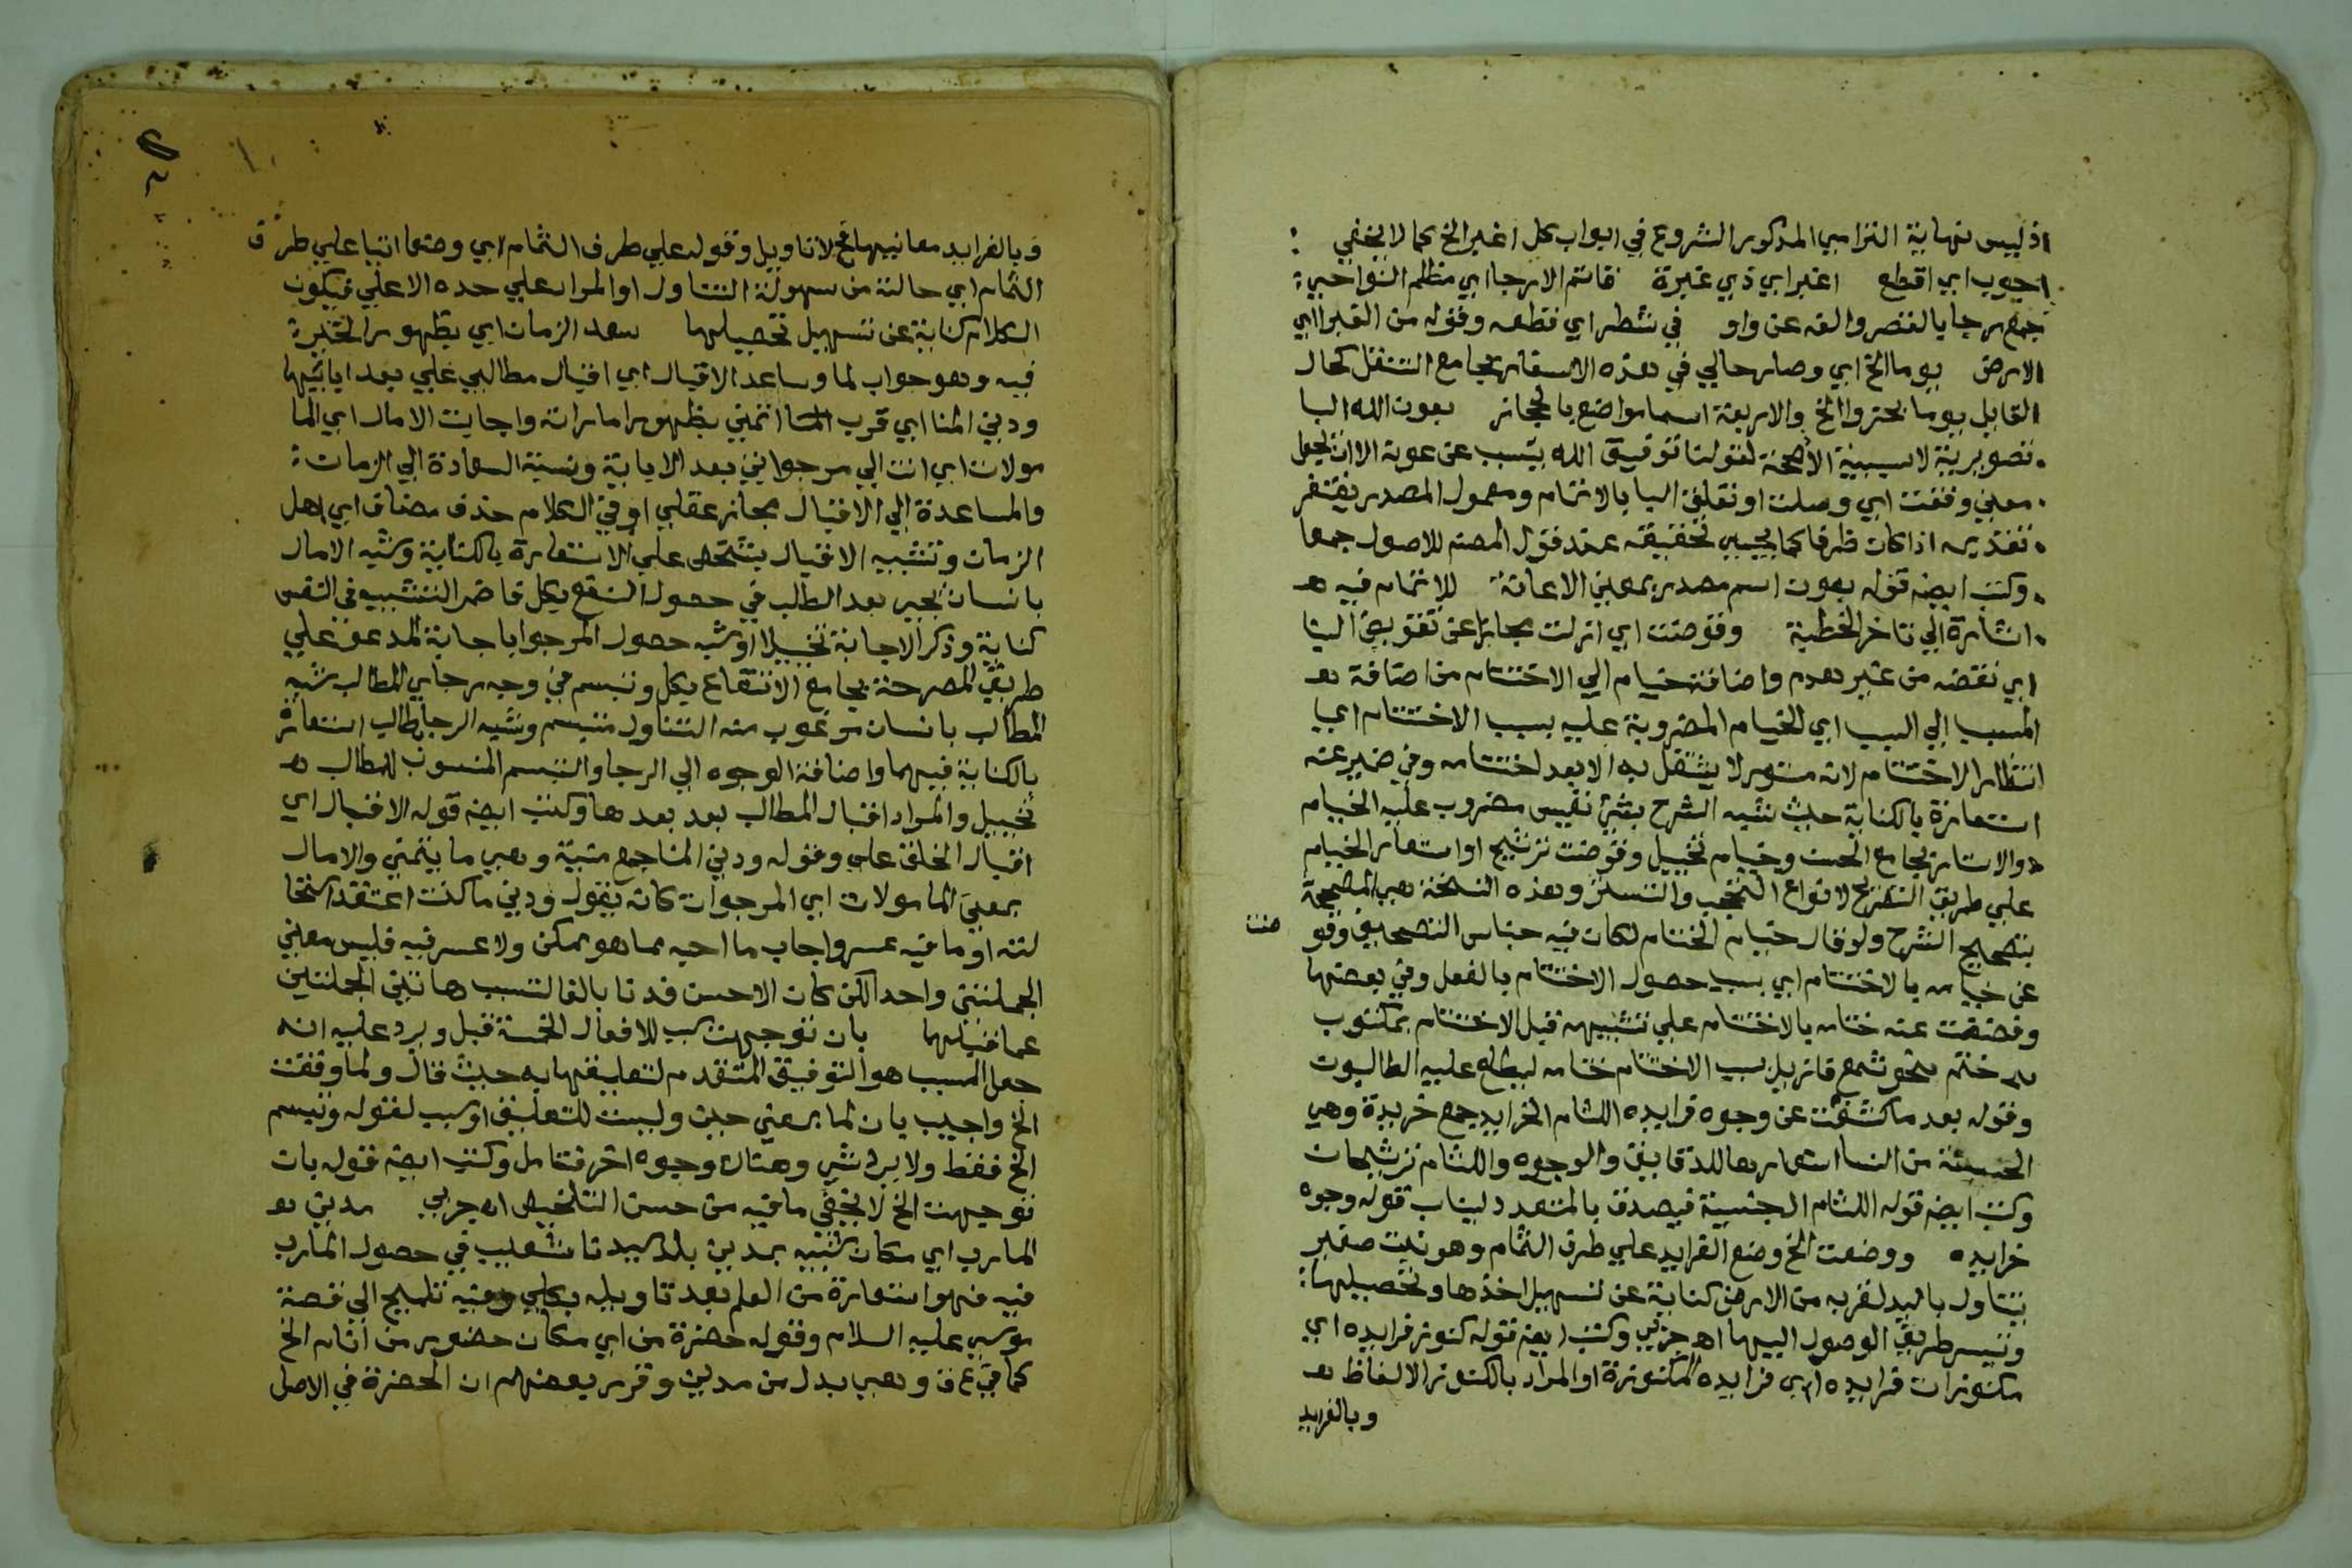 اذ ليس نهاية الترامي المذكور الشروع في ابواب كل اغبر الخ كما لا يخفي
اجوب اي اقطع اغبر اي ذي غبرة قاتم الارجا اي مظلم النواحي
جمع رجا بالقصر والفه عن واو في شطر اي قطعه وقوله من الغبرا اي
الارض يوما الخ اي وصار حالي في هذه الاسفار بجامع التنقل كحال
القايل يوما بحزوا الخ والاربعة اسما مواضع بالحجاز بعون الله البا
تصويرية لا سببية الا صحة لقولنا توفيق الله يتسبب عن عونه الا ان يجعل
معني وفقت اي وصلت او تعلق البا بالاتمام ومعمول المصدر يغتفر
تقديمه اذا كان ظرفا كما يجيي تحقيقه عند قول المصنم للاصول جمعا
وكتب ايضه قوله بعون اسم مصدر بمعني الاعانة للاتمام فيه
اشارة الي تاخر الخطبة وقوضت اي ازلت مجازا عن تقويض البنا
اي نقضه من غير هدم واضافة خيام الي الاختتام من اضافة
المسبب الي السبب اي الخيام المضروبة عليه بسبب الاختتام اي
انتظار الاختتام لانه مستور لا ينتقل به الا بعد اختتامه وفي ضمير عنه
استعارة بالكناية حيث شبه الشرح بشئ نفيس مضروب عليه الخيام
والاستار بجامع الحسن وخيام تخييل وقوضت ترشيح او استعار الخيام
علي طريق التصريح لانواع التحجب والتستر وهذه النسخة هي الصحيحة
بتصحيح الشرح ولو قال ختام الختام لكان فيه جناس التصحيف وقو ضت
عن خيامه بالاختتام اي بسبب حصول الاختتام بالفعل وفي بعضها
وفضضت عنه ختامه بالاختتام علي تشبيهه قبل الاختتام بمكتوب
ختم بنحو شمع فازيل بسبب الاختتام ختامه ليطلع عليه الطالبون
وقوله بعد ما كشفت عن وجوه خرايده اللثام الخرايد جمع خريدة وهي
الحسنة من النسا استعارها للدقايق والوجوه واللثام ترشيحان
وكتب ايضه قوله اللثام ال جنسية فيصدق بالمتعدد ليناسب قوله وجوه
خرايده ووضعت الخ وضع الفرايد علي طرف الثمام وهو نبت صغير
يتناول باليد لقربه من الارض كناية عن تسهيل اخذها وتحصيلها
وتيسر طريق الوصول اليها اهـ جربي وكتب ايضه قوله كنوز فرايده اي
مكنوزات فرايده اي فرايده المكنوزة او المراد بالكنوز الالفاظ
وبالفرايد
وبالفرايد معانيها فلا تاويل وقوله علي طرف الثمام اي وضعا اتيا علي طرف
الثمام اي حالته من سهولة التناول او المراد علي حده الاعلي فيكون
الكلام كناية عن تسهيل تحصيلها سعد الزمان اي بظهور الخيرة
فيه وهو جواب لما وساعد الاقبال اي اقبال مطالبي علي بعد ابائها
ودني المنا اي قرب اتمني بظهور اماراته واجابت الامال اي الما
مولات اي انت الي مرجواتي بعد الاباية ونسبة السعادة الي الزمان
والمساعدة الي الاقبال مجاز عقلي او في الكلام حذف مضاف اي اهل
الزمان وتشبيه الاقبال بشخص علي الاستعارة بالكناية وشبه الامال
بانسان يجيب بعد الطلب في حصول النفع بكل فاضمر التشبيه في النفس
كناية وذكر الاجابة تخييلا او شبه حصول المرجوا باجابة المدعو علي
طريق المصرحة بجامع الانتفاع بكل وتبسم في وجه رجاي المطالب شبه
المطالب بانسان مرغوب منه التناول متبسم وشبه الرجا بطالب استعارة
بالكناية فيهما واضافة الوجوه الي الرجا والتبسم المنسوب للمطالب
تخييل والمراد اقبال المطالب بعد بعدها وكتب ايضه قوله الاقبال اي
اقبال الخلق علي وقوله ودني المنا جمع منية وهي ما يتمني والامال
بمعني المامولات اي المرجوات كانه يقول ودني ما كنت اعتقد استحا
لته او ما فيه عسر واجاب ما احبه مما هو ممكن ولا عسر فيه فليس معني
الجملتين واحدا لكن كان الاحسن فدنا بالفا لتسبب هاتين الجملتين
عما قبلهما بان توجهت سبب للافعال الخمسة قبل ويرد عليه انه
جعل السبب هو التوفيق المتقدم لتعليقها به حيث قال ولما وفقت
الخ واجيب بان لما بمعني حين وليست للتعليق او سبب لقوله وتبسم
الخ فقط ولا يرد شي وهناك وجوه اخر فتامل وكتب ايضه قوله بان
توجهت الخ لا يخفي ما فيه من حسن التلخيص اهـ جربي مدين
المارب اي مكان شبيه بمدين بلد سيدنا شعيب في حصول المارب
فيه فهو استعارة من العلم بعد تاويله بكلي وفيه تلميح الي قصة
موسي عليه السلام وقوله حضرة من اي مكان حضور من انام الخ
كما في ع ق وهي بدل من مدين وقرر بعضهم ان الحضرة في الاصل